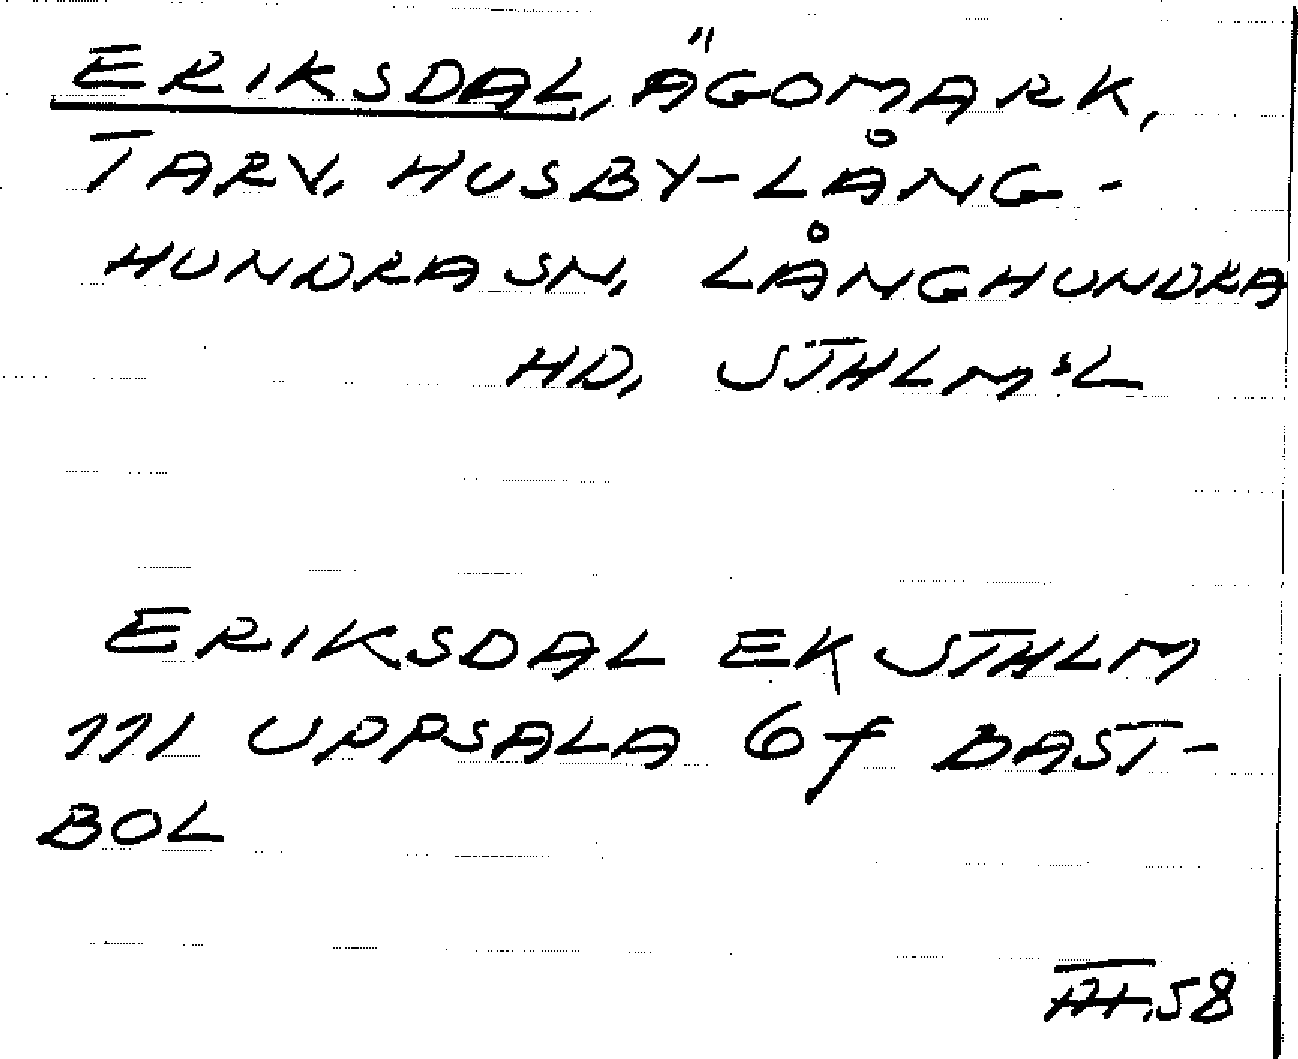 ERIKSDAL, ÄGOMARK,
TARV, HUSBY-LÅNG-
HUNDRA SN, LÅNGHUNDRA
HD, STHLM:S L
ERIKSDAL EK STHLM
111 UPPSALA 6f BAST-
BOL
58